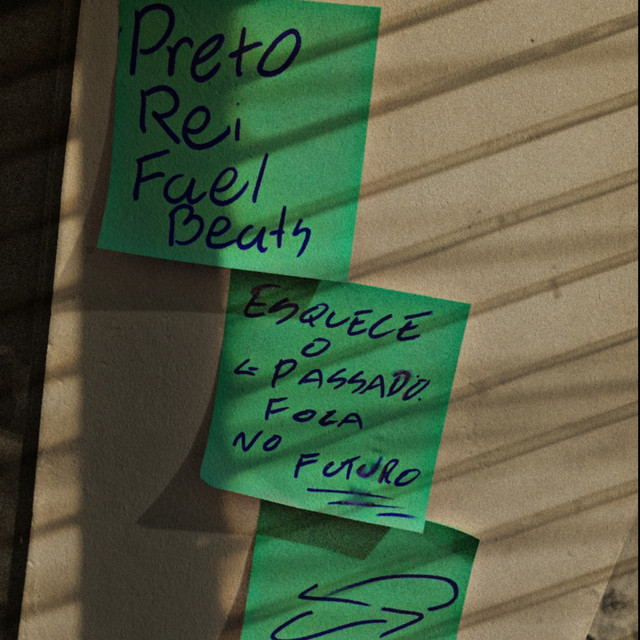 Preto
Rei
Fael
Beats
ESQUECE
O
< PASSADO.
FOCA
NO
FUTURO